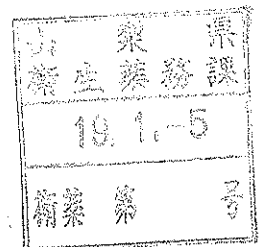 山梨県
衛生薬務課
19.1.-5
衛薬第　　号